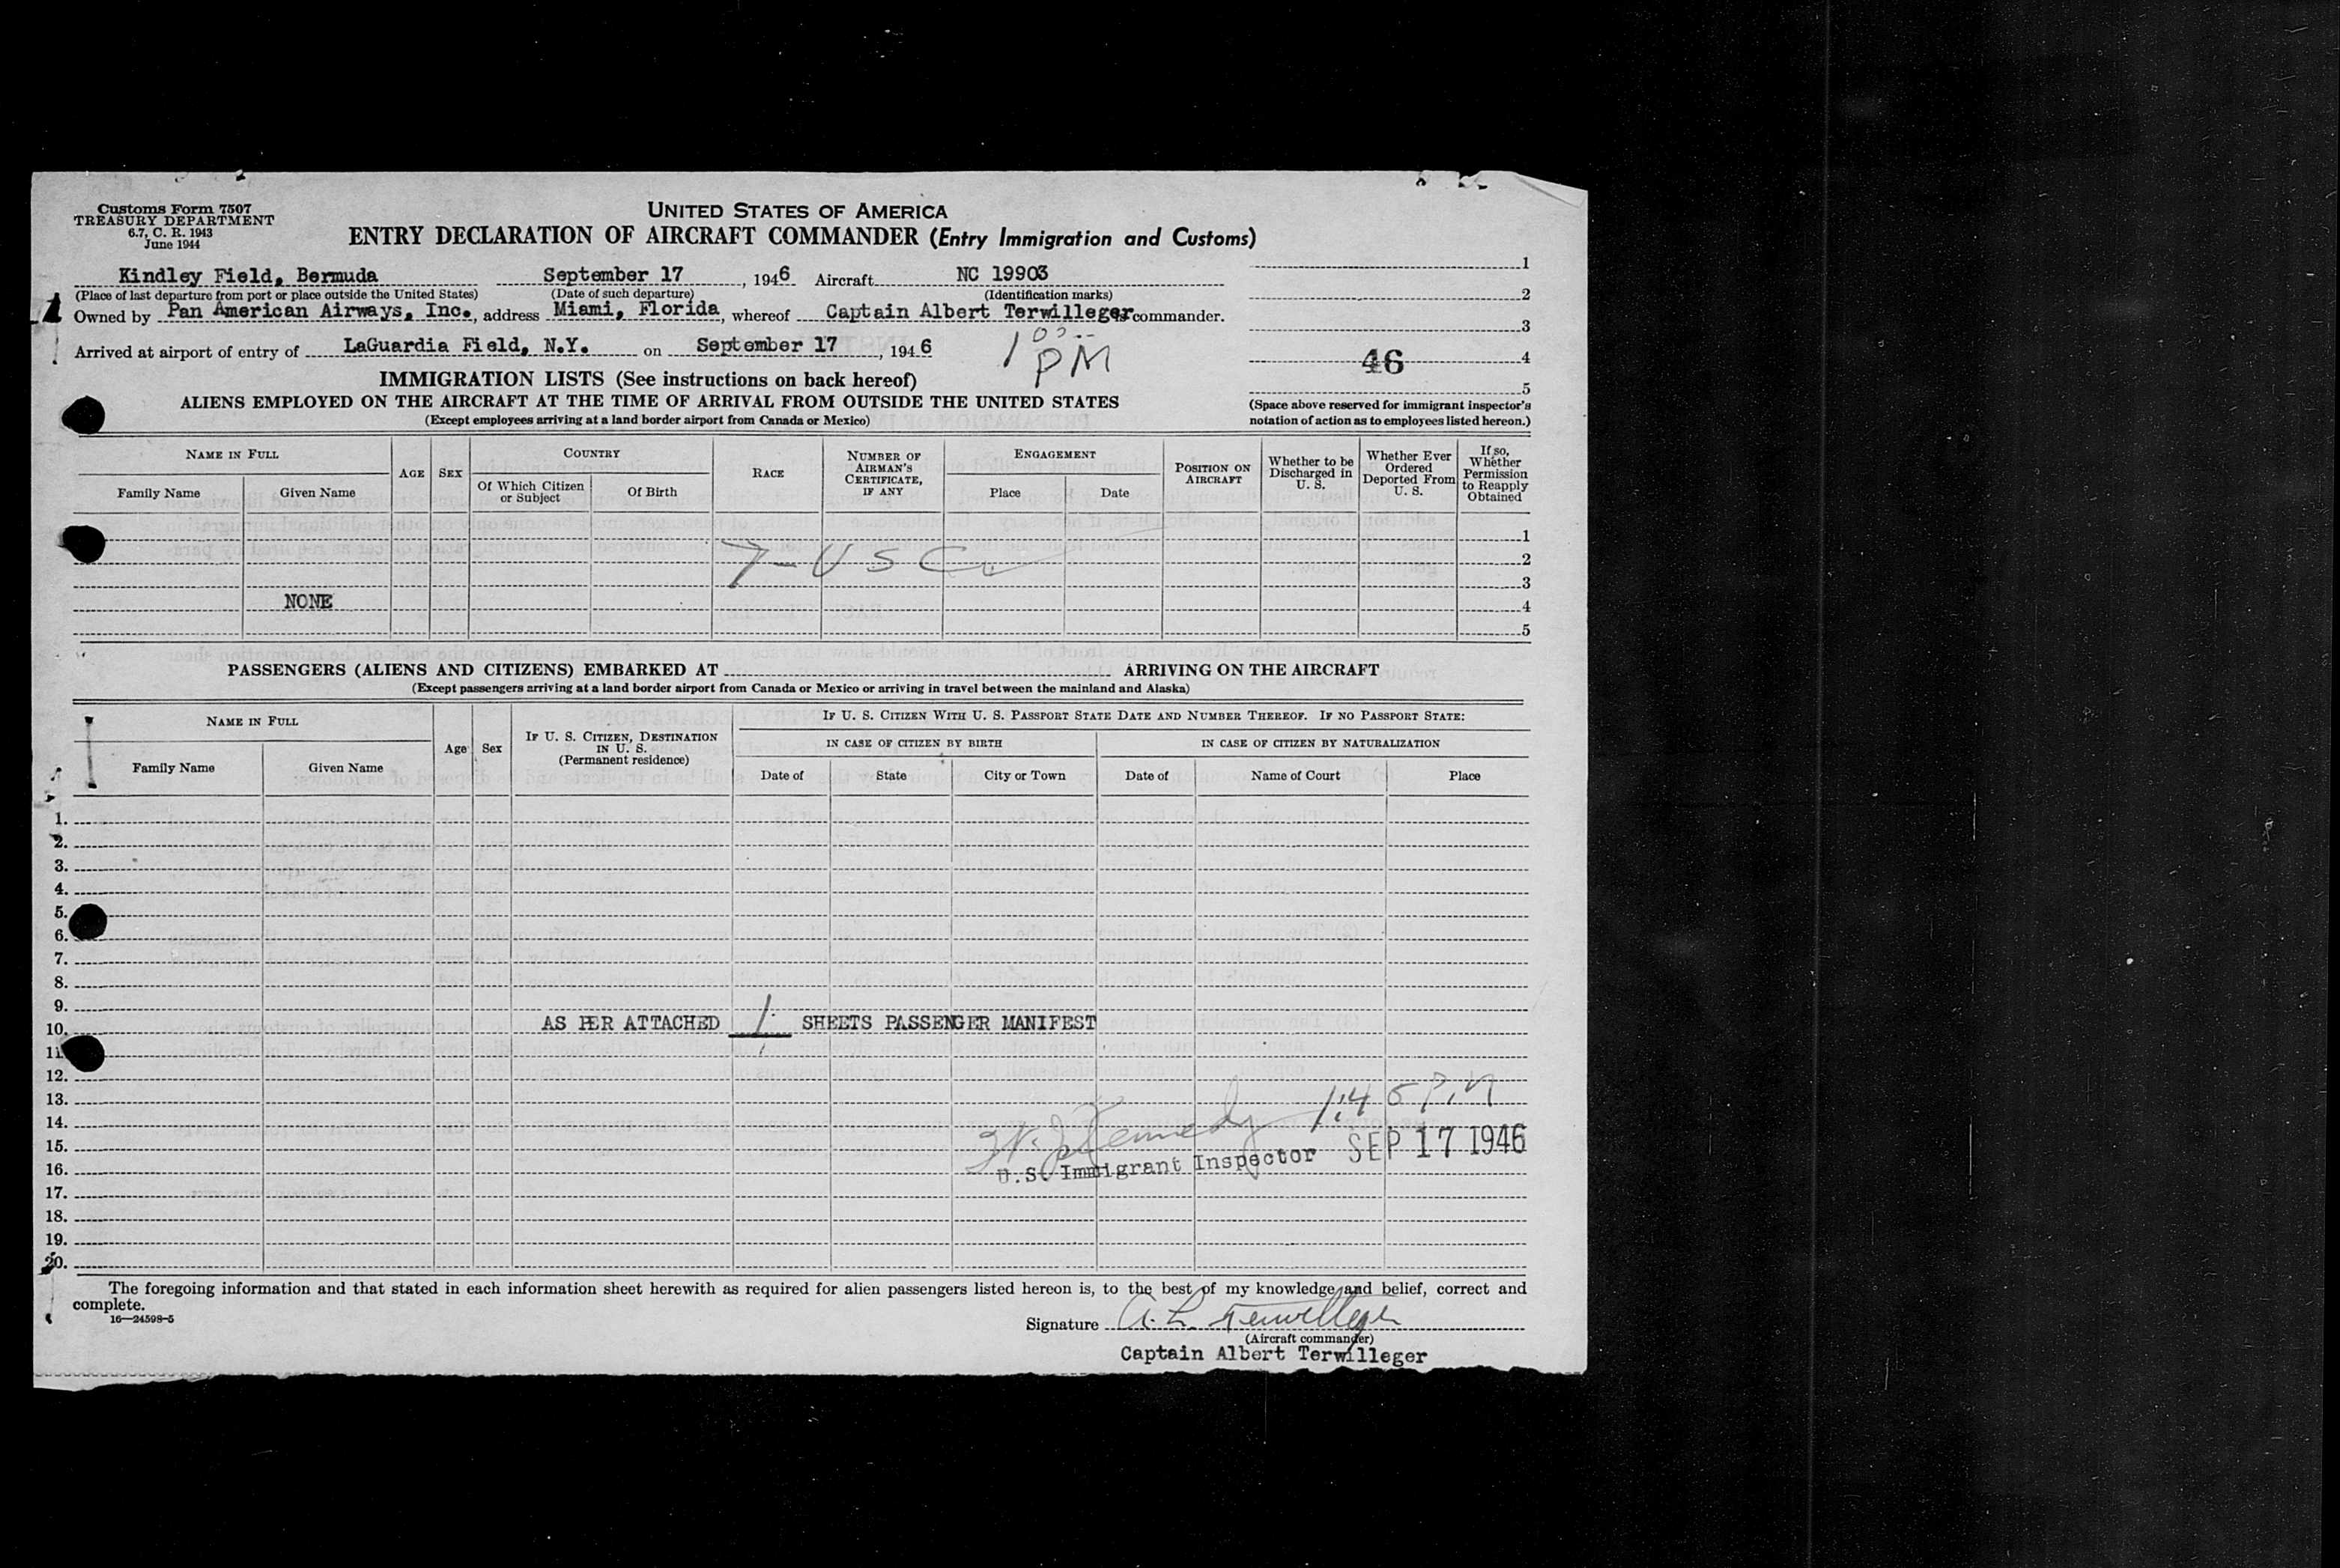 Customs Form 7507
TREASURY DEPARTMENT
6.7, C. R. 1943
June 1944
UNITED STATES OF AMERICA
ENTRY DECLARATION OF AIRCRAFT COMMANDER (Entry Immigration and Customs)
Kindley Field, Bermuda September 17, 1946 Aircraft NC 19903
(Place of last departure from port or place outside the United States) (Date of such departure) (Identification marks)
Owned by Pan American Airways, Inc., address Miami, Florida, whereof Captain Albert Terwilleger commander.
Arrived at airport of entry of LaGuardia Field, N.Y. on September 17, 1946
1 00 PM
1
2
3
46 4
5
(Space above reserved for immigrant inspector's
notation of action as to employees listed hereon.)
IMMIGRATION LISTS (See instructions on back hereof)
ALIENS EMPLOYED ON THE AIRCRAFT AT THE TIME OF ARRIVAL FROM OUTSIDE THE UNITED STATES
(Except employees arriving at a land border airport from Canada or Mexico)
NAME IN FULL
Family Name
Given Name
AGE
SEX
COUNTRY
Of Which Citizen
or Subject
Of Birth
RACE
NUMBER OF
AIRMAN'S
CERTIFICATE,
IF ANY
ENGAGEMENT
Place
Date
POSITION ON
AIRCRAFT
Whether to be
Discharged in
U. S.
Whether Ever
Ordered
Deported From
U. S.
If so,
Whether
Permission
to Reapply
Obtained
1
7 - U S C 2
3
NONE 4
5
PASSENGERS (ALIENS AND CITIZENS) EMBARKED AT ARRIVING ON THE AIRCRAFT
(Except passengers arriving at a land border airport from Canada or Mexico or arriving in travel between the mainland and Alaska)
NAME IN FULL
Family Name
Given Name
Age
Sex
IF U. S. CITIZEN, DESTINATION
IN U. S.
(Permanent residence)
IF U. S. CITIZEN WITH U. S. PASSPORT STATE DATE AND NUMBER THEREOF. IF NO PASSPORT STATE:
IN CASE OF CITIZEN BY BIRTH
Date of
State
City or Town
IN CASE OF CITIZEN BY NATURALIZATION
Date of
Name of Court
Place
1.
2.
3.
4.
5.
6.
7.
8.
9.
10. AS PER ATTACHED 1 SHEETS PASSENGER MANIFEST
11.
12.
13. 1:45 P.M
14. Kennedy
15. SEP 17 1946
16. U.S. Immigrant Inspector
17.
18.
19.
20.
The foregoing information and that stated in each information sheet herewith as required for alien passengers listed hereon is, to the best of my knowledge and belief, correct and
complete.
16—24598-5
Signature A. L. Terwilleger
(Aircraft commander)
Captain Albert Terwilleger